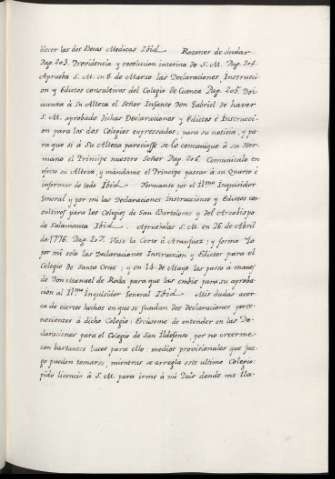 Hacer las dos Becas Medicas Ibid. Razones de dudar
Pag. 203. Providencia y resolucion interina de S. M. Pag. 204.
Aprueba S. M. en 6 de Marzo las Declaraciones, Instrucci
on y Edictos consultivos del Colegio de Cuenca Pag. 205. Par
ticionto à su Alteza el Señor Infante Don Gabriel de haver
S. M. aprobado dichas Declaraciones y Edictos è Instrucci
on para los dos Colegios expresados, para su noticia, y pa
ra que si à Su Alteza pareciesse se lo comunique à su Her
mano el Principe nuestro Señor Pag. 206. Comunicalo en
efecto su Alteza, y mandame el Principe passar à su Quarto è
informar de todo Ibid. Formanse por el Ilmo. Inquisidor
General y por mi las Declaraciones Instrucciones y Edictos con
vocatorios para los Colegios de San Bartolome y del Arzobispo
de Salamanca Ibid. Apruebalas S. M. en 26 de Abril
de 1776. Pag. 207. Vase la Corte à Aranjuez; y formo Yo
por mi solo las Declaraciones Instruccion y Edictos para el
Colegio de Santa Cruz; y en 14 de Mayo las passo à manos
de Don Manuel de Roda para que las embie para su aproba
cion al Ilmo. Inquisidor General Ibid. Mis dudas acer
ca de ciertos hechos en que se fundan las Declaraciones perte
necientes à dicho Colegio: Escusome de entender en las De
claraciones para el Colegio de San Ildefonso, por no creerme
con bastantes luces para ello: medios provisionales que juz
go pueden tomarse, mientras se arregla este ultimo Colegio:
pido licencia à S. M. para irme à mi Pais donde me lla-